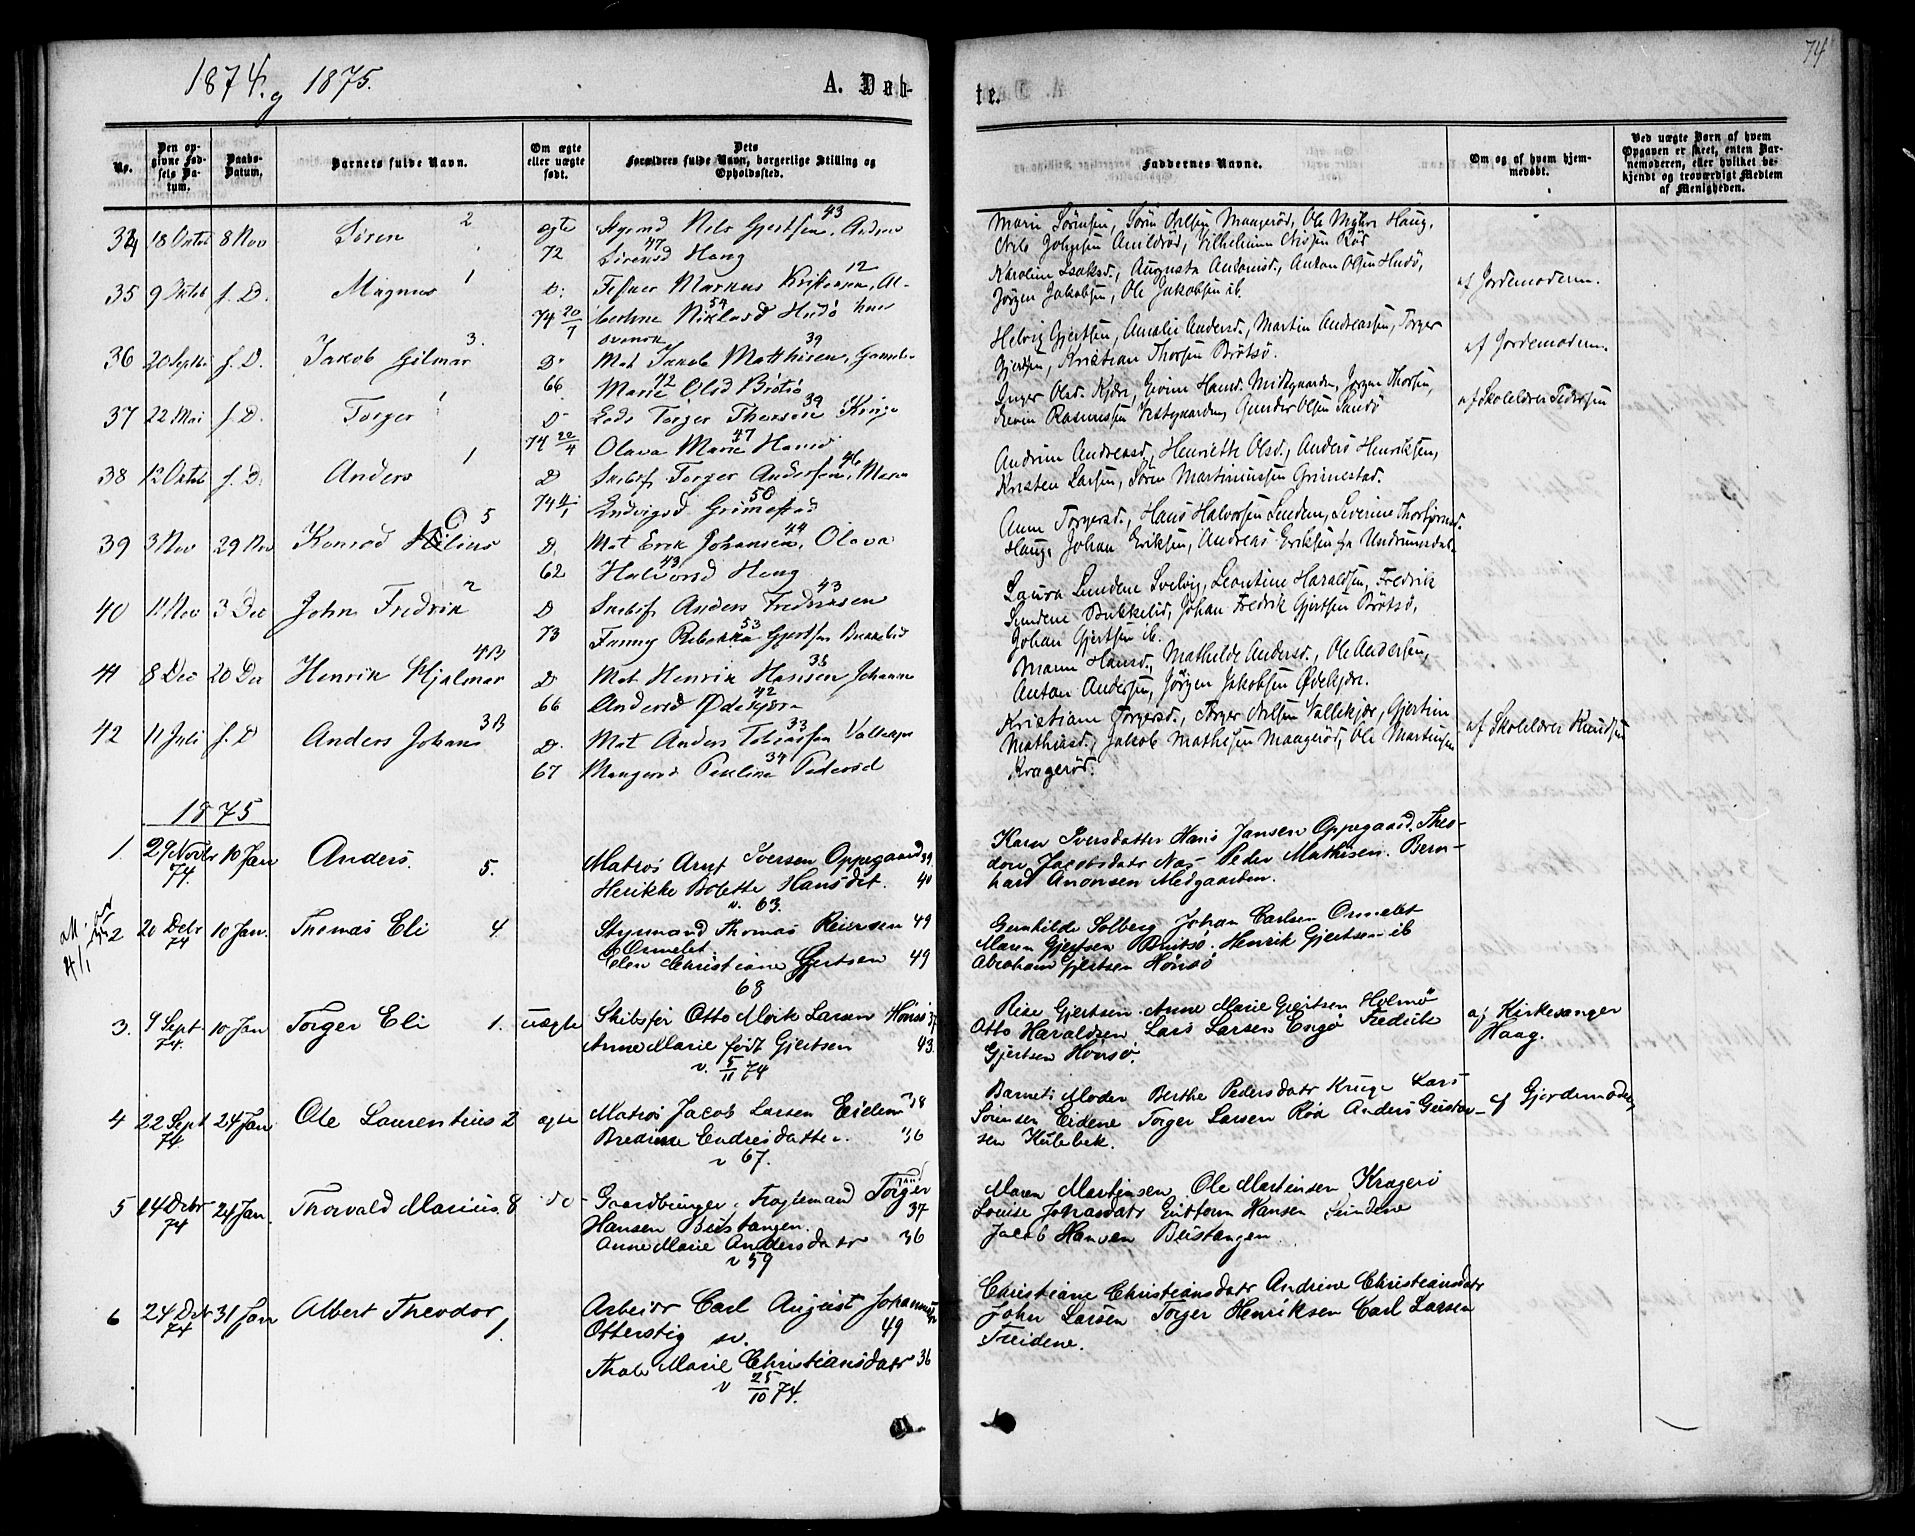 74
1874 og 1875.
A. Døb-
te.
No.
Den op-
givne Fød-
sels Da-
tum.
Daabs-
Datum.
Barnets fulde Navn.
Om ægte
eller uægte
født.
Dets
Forældres fulde Navn, borgerlige Stilling og
Opholdssted.
Faddernes Navne.
Om og af hvem hjem-
medøbt.
Ved uægte Barn af hvem
Opgaven er skeet, enten Bar-
nemoderen, eller hvilket be-
kjendt og troværdigt Medlem
af Menigheden.
34 18 Octob 8 Nov Sören 2 ægte Styrmd Nils Gjertsen, 43 Andrea
72 Sörensd 47 Haug
Marie Sörensen, Sören Nilsen Maageröd, Ole Myhre Haug,
Nils Johnsen Arildröd, Vilhelmine Nissen Röd
35 9 Octob f. D. Magnus 1 D. Fisker Markus Kristensen, 12 Al-
74 20/7 bertine Niklasd 54 Hudö
Karoline Isaksd., Augusta Antonisd., Anton Olsen Hudö,
Jörgen Jakobsen, Ole Jakobsen ib.
af Jordemoderen.
36 20 Septbr f. D. Jakob Hilmar 3. D. Mat Jakob Mathisen, 39
66 Marie 42 Olsd Brötsö
Helvig Gjertsen, Amalie Andersd., Martin Andreassen, Torger
Gjertsen, Kristian Thorsen Brötsö.
af Jordemoderen.
37 22 Mai f. D. Torger 1 D. Lods Torger Thorsen 39 Kruge
74 20/4 Olava Marie 47 Hansd
Inger Olsd. Kjær, Gevine Hansd. Midtgaarden, Jörgen Thorsen,
Edvin Rasmussen Vestgaarden, Gunder Olsen Sandö
af Skolelærer Pedersen
38 12 Octob f. D. Anders 1 D Skibsf Torger Andersen, 46 Maren
74 Ludvigsd 50 Grimestad
Andrine Andreasd., Henriette Olsd., Anders Henriksen,
Kristen Larsen, Sören Martiniussen Grimestad.
39 3 Nov 29 Nov Konrad Olius 5 D. Mat Erik Johansen, 44 Olava
62 Halvorsd 43 Haug
Anne Torgersd., Hans Halvorsen Sunden, Severine Thorbjörnsd.
Haug, Johan Eriksen, Andreas Eriksen fra Undrumsdal.
40 11 Nov 3 Dec John Fredrik 2 D Skibsf Anders Fredriksen 43
73 Fanny Rebekka 53 Gjertsen Bukkelid
Laura Sundene Svelvig, Leontine Haraldsen, Fredrik
Sundene Bukkelid, Johan Fredrik Gjertsen Brötsö,
Johan Gjertsen ib.
41 8 Dec 20 Dec Henrik Hjalmar 4B D Mat Henrik Hansen 35 Johanne
66 Andersd 42 Ödekjær
Maren Hansd., Mathilde Andersd., Ole Andersen,
Anton Andersen, Jörgen Jakobsen Ödekjær.
42 11 Juli f. D Anders Johans 3B D. Mat Anders Tobiassen 33 Vallekjær
67 Mangersd Pauline 34 Pedersd
Kristiane Torgersd., Torger Nilsen Vallekjær, Gjertine
Mathiasd., Jakob Mathisen Maageröd, Ole Martinsen
Krageröd.
af Skolelærer Knudsen
1875
1. 29 Novbr 74. 10 Jan Anders. 5. Matros Arnt Iversen Oppegaard 39
Henrikke Bolette Hansdt. 40
v. 63.
Karen Iversdatter Hans Jansen Oppegaard. Theo-
dore Jacobsdatr Næs Peder Mathisen. Bern-
hard Anonsen Medgaarden.
2 20 Debr 74 10 Jan. Thomas Eli 4. Styrmand Thomas Reiersen 49
Ormelet
Elen Christiane Gjertsen 49
68
Gunhilde Solberg Johan Carlsen Ormelet
Maren Gjertsen Brötsö. Henrik Gjertsen ib
Abraham Gjertsen Hönsö
3. 9 Sept 74. 10 Jan Torger Eli 1. uægte Skibsfør Otto Mørk Larsen Hönsö 37
Anne Marie født Gjertsen 43.
v. 5/11 74
Rise Gjertsen. Anne Marie Gjertsen Holmö
Otto Haraldsen Lars Larsen Engö Fredrik
Gjertsen Hönsö.
af Kirkesanger
Haag.
4 22 Sept 74. 24 Jan Ole Laurentius 2 ægte Matros Jacob Larsen Eidene 38
Bredine Endresdatter. 36
v 67.
Barnets Moder Berthe Pedersdatr Kruge Lars
Sørensen Eidene Torger Larsen Röd Anders Gustav-
sen Hulebæk.
af Gjordemoder,
5 14 Decbr 74 24 Jan. Thorvald Marius. 8 do Gaardbruger, Fraglemand Torger
Hansen Bustangen. 37
Anne Marie Andersdatr 36
v 59
Maren Martinsen, Ole Martinsen Kragerö
Louise Johansdatr Guttorm Hansen Sundene
Jacob Hansen Bustangen
6 24 Dcbr 74 31 Jan Albert Theodor 1. Arbeider Carl August Johannesen
Otterstig sv 49
Thale Marie Christiansdatr 36
v 25/10 74.
Christiane Christiansdatr Andrine Christiansdatr
John Larsen Torger Henriksen Carl Larsen
Treidene.